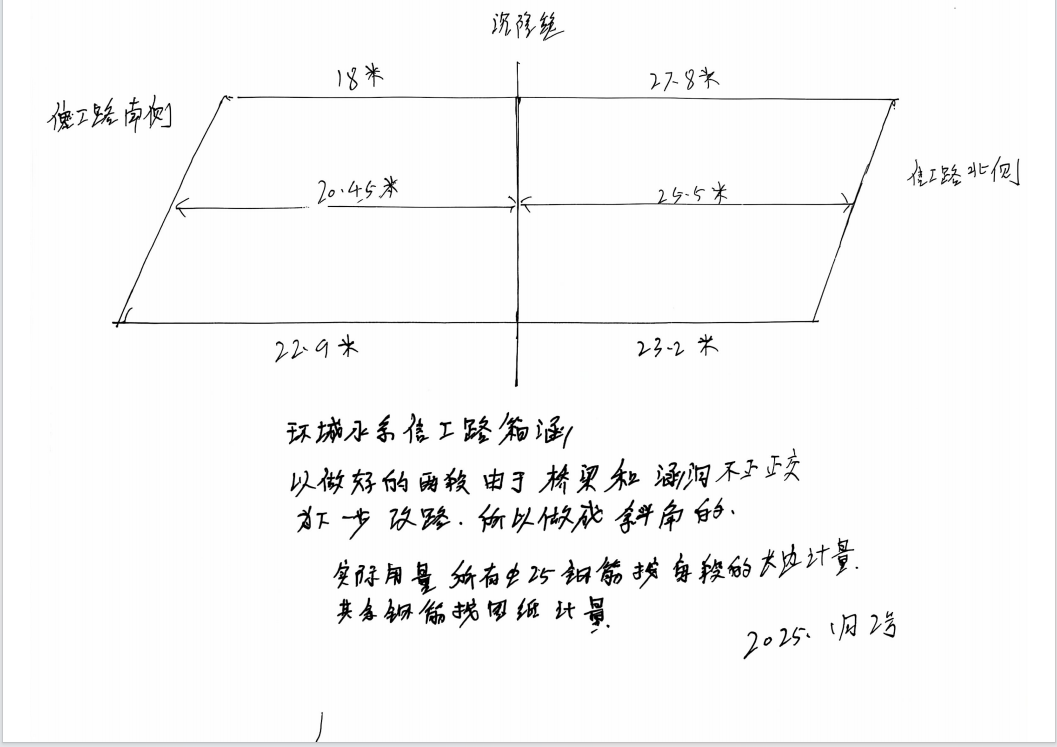 沉降缝
18米
27.8米
信工路南侧
信工路北侧
20.45米
25.5米
22.9米
23.2米
环城水系信工路箱涵
以做好的两段由于桥梁和涵洞不正正交
为下一步改路.所以做成斜角的.
实际用量 所有φ25钢筋按每段的长边计量.
其余钢筋按图纸计量.
2025.1月2号